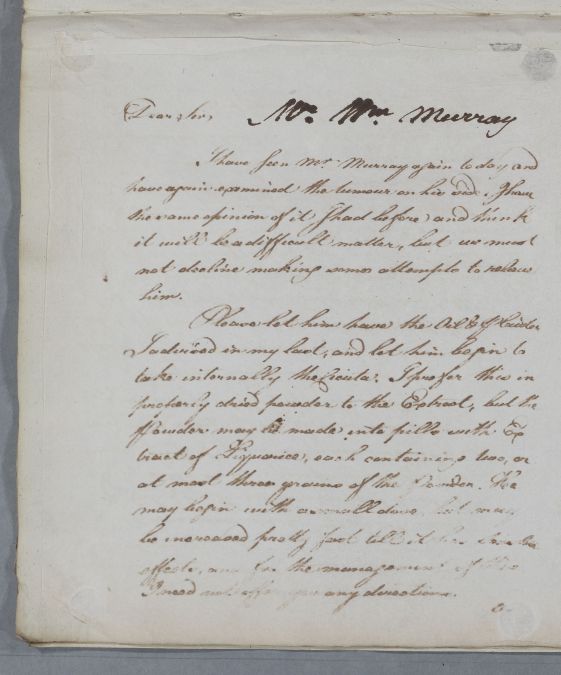 Dear Sir, Mr. Wm. Murray
I have seen Mr. Murray again to day and
have again examined the tumour on his side. I have
the same opinion of it I had before, and think
it will be a difficult matter, but we must
not decline making some attempts to relieve
him.
Please let him have the
I advised in my last, and let him begin to
take internally the Cicuta. I prefer this in
properly dried powder to the Extract, but the
Powder may be made into pills with Ex
tract of Liquorice, each containing two, or
at most three grains of the Powder. He
may begin with a small dose, but may
be increased pretty fast till it has
effects, and for the management of this
I need not offer you any directions.